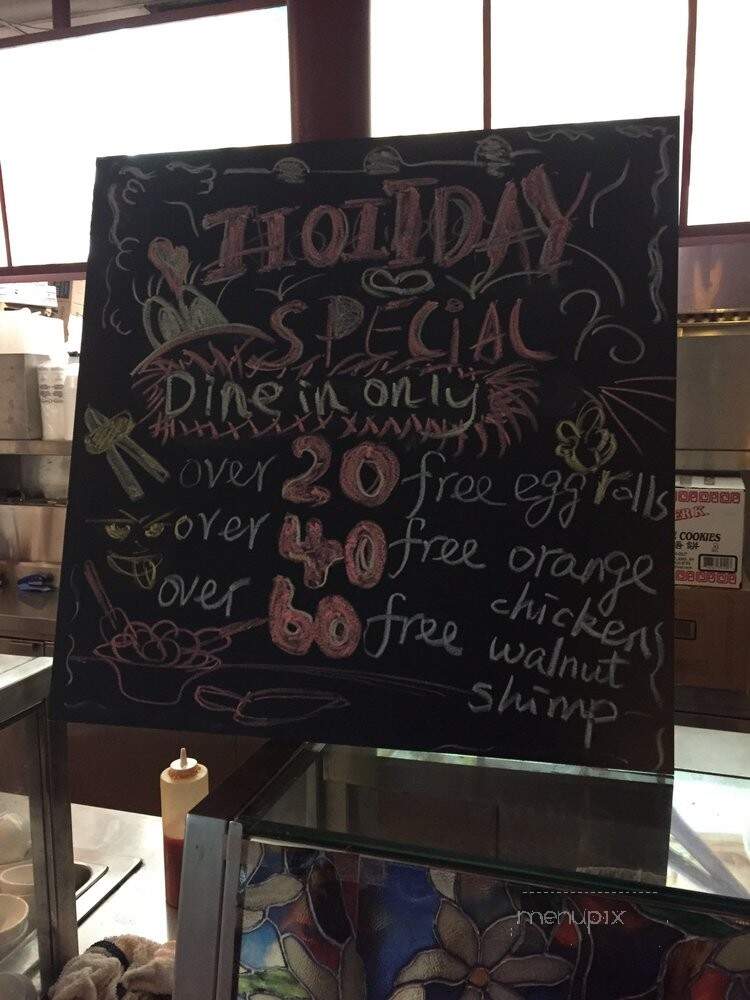 HOLIDAY
SPECIAL
Dine in only
over 20 free egg rolls
over 40 free orange
chicken
over 60 free walnut
shimp
COOKIES
menupix